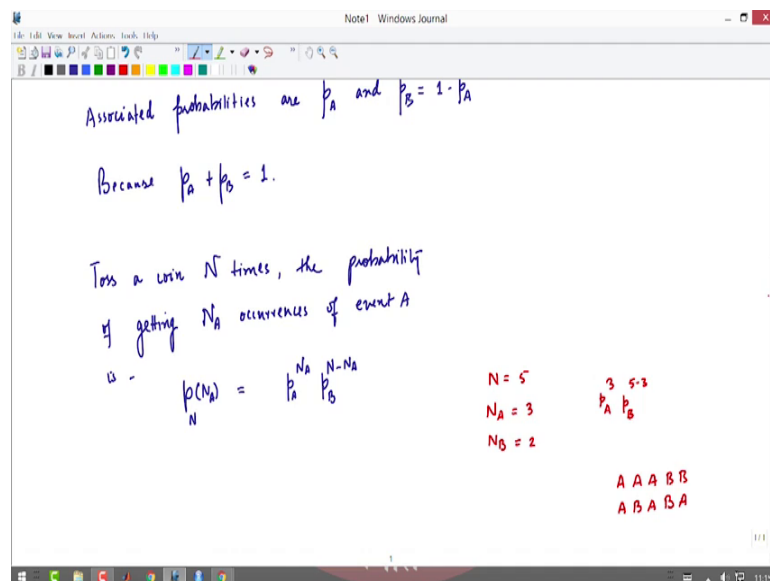 Note1 Windows Journal
File Edit View Insert Actions Tools Help
B I
Associated probabilities are p_A and p_B = 1 - p_A
Because p_A + p_B = 1.
Toss a coin N times, the probability
of getting N_A occurrences of event A
is -
p_N(N_A) = p_A^{N_A} p_B^{N-N_A}
N = 5
p_A^3 p_B^{5-3}
N_A = 3
N_B = 2
A A A B B
A B A B A
1/1
1